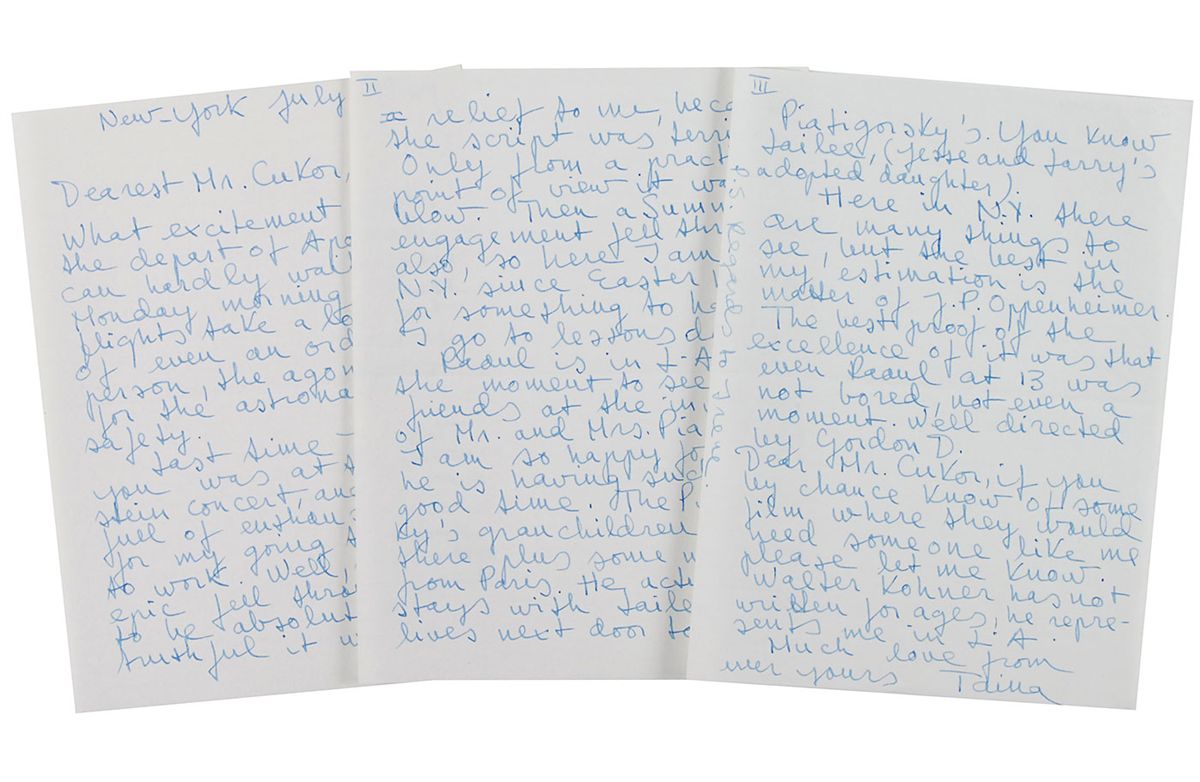 New-York July
Dearest Mr. Cukor,
What excitement
the depart of Apo
can hardly wai
Monday morning
flights take a lo
of even an ord
person, the agon
for the astrona
safety.
Last time –
you was at
stein concert, and
full of enthou
for my going
to work. Well,
epic fell thro
to be absolut
truthful it w
II
a relief to me, beca
the script was terri
Only from a pract
point of view it wa
blow. Then a Summ
engagement fell thr
also, so here I am
N.Y. since Easter
for something to ha
I go to lessons d
Raoul is in L-A
the moment to see
friends at the inv
of Mr. and Mrs. Pia
I am so happy for
he is having such
good time. The P
ky's granchildren
there plus some
from Paris. He actu
stays with Lailee
lives next door to
P.S. Regards to Irene
III
Piatigorsky's. You know
Lailee, (Jesse and Larry's
adopted daughter).
Here in N.Y. there
are many things to
see, but the best in
my estimation is the
matter of J.P. Oppenheimer.
The best proof of the
excellence of it was that
even Raoul at 13 was
not bored, not even a
moment. Well directed
by Gordon D.
Dear Mr. Cukor, if you
by chance know of some
film where they would
need someone like me
please let me know.
Walter Kohner has not
written for ages, he repre-
sents me in L.A.
Much love from
ever yours Taina